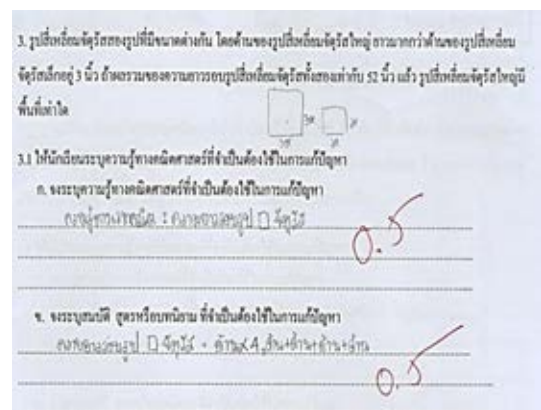 3. รูปสี่เหลี่ยมจัตุรัสสองรูปที่มีขนาดต่างกัน โดยด้านของรูปสี่เหลี่ยมจัตุรัสใหญ่ ยาวมากกว่าด้านของรูปสี่เหลี่ยม
จัตุรัสเล็กอยู่ 3 นิ้ว ถ้าผลรวมของความยาวรอบรูปสี่เหลี่ยมจัตุรัสทั้งสองเท่ากับ 52 นิ้ว แล้ว รูปสี่เหลี่ยมจัตุรัสใหญ่มี
พื้นที่เท่าใด
3.1 ให้นักเรียนระบุความรู้ทางคณิตศาสตร์ที่จำเป็นต้องใช้ในการแก้ปัญหา
ก. จงระบุความรู้ทางคณิตศาสตร์ที่จำเป็นต้องใช้ในการแก้ปัญหา
: ความยาวรอบรูป □ จัตุรัส
0.5
ข. จงระบุสมบัติ สูตรหรือบทนิยาม ที่จำเป็นต้องใช้ในการแก้ปัญหา
ความยาวรอบรูป □ จัตุรัส = ด้าน×4, ด้าน+ด้าน+ด้าน+ด้าน
0.5